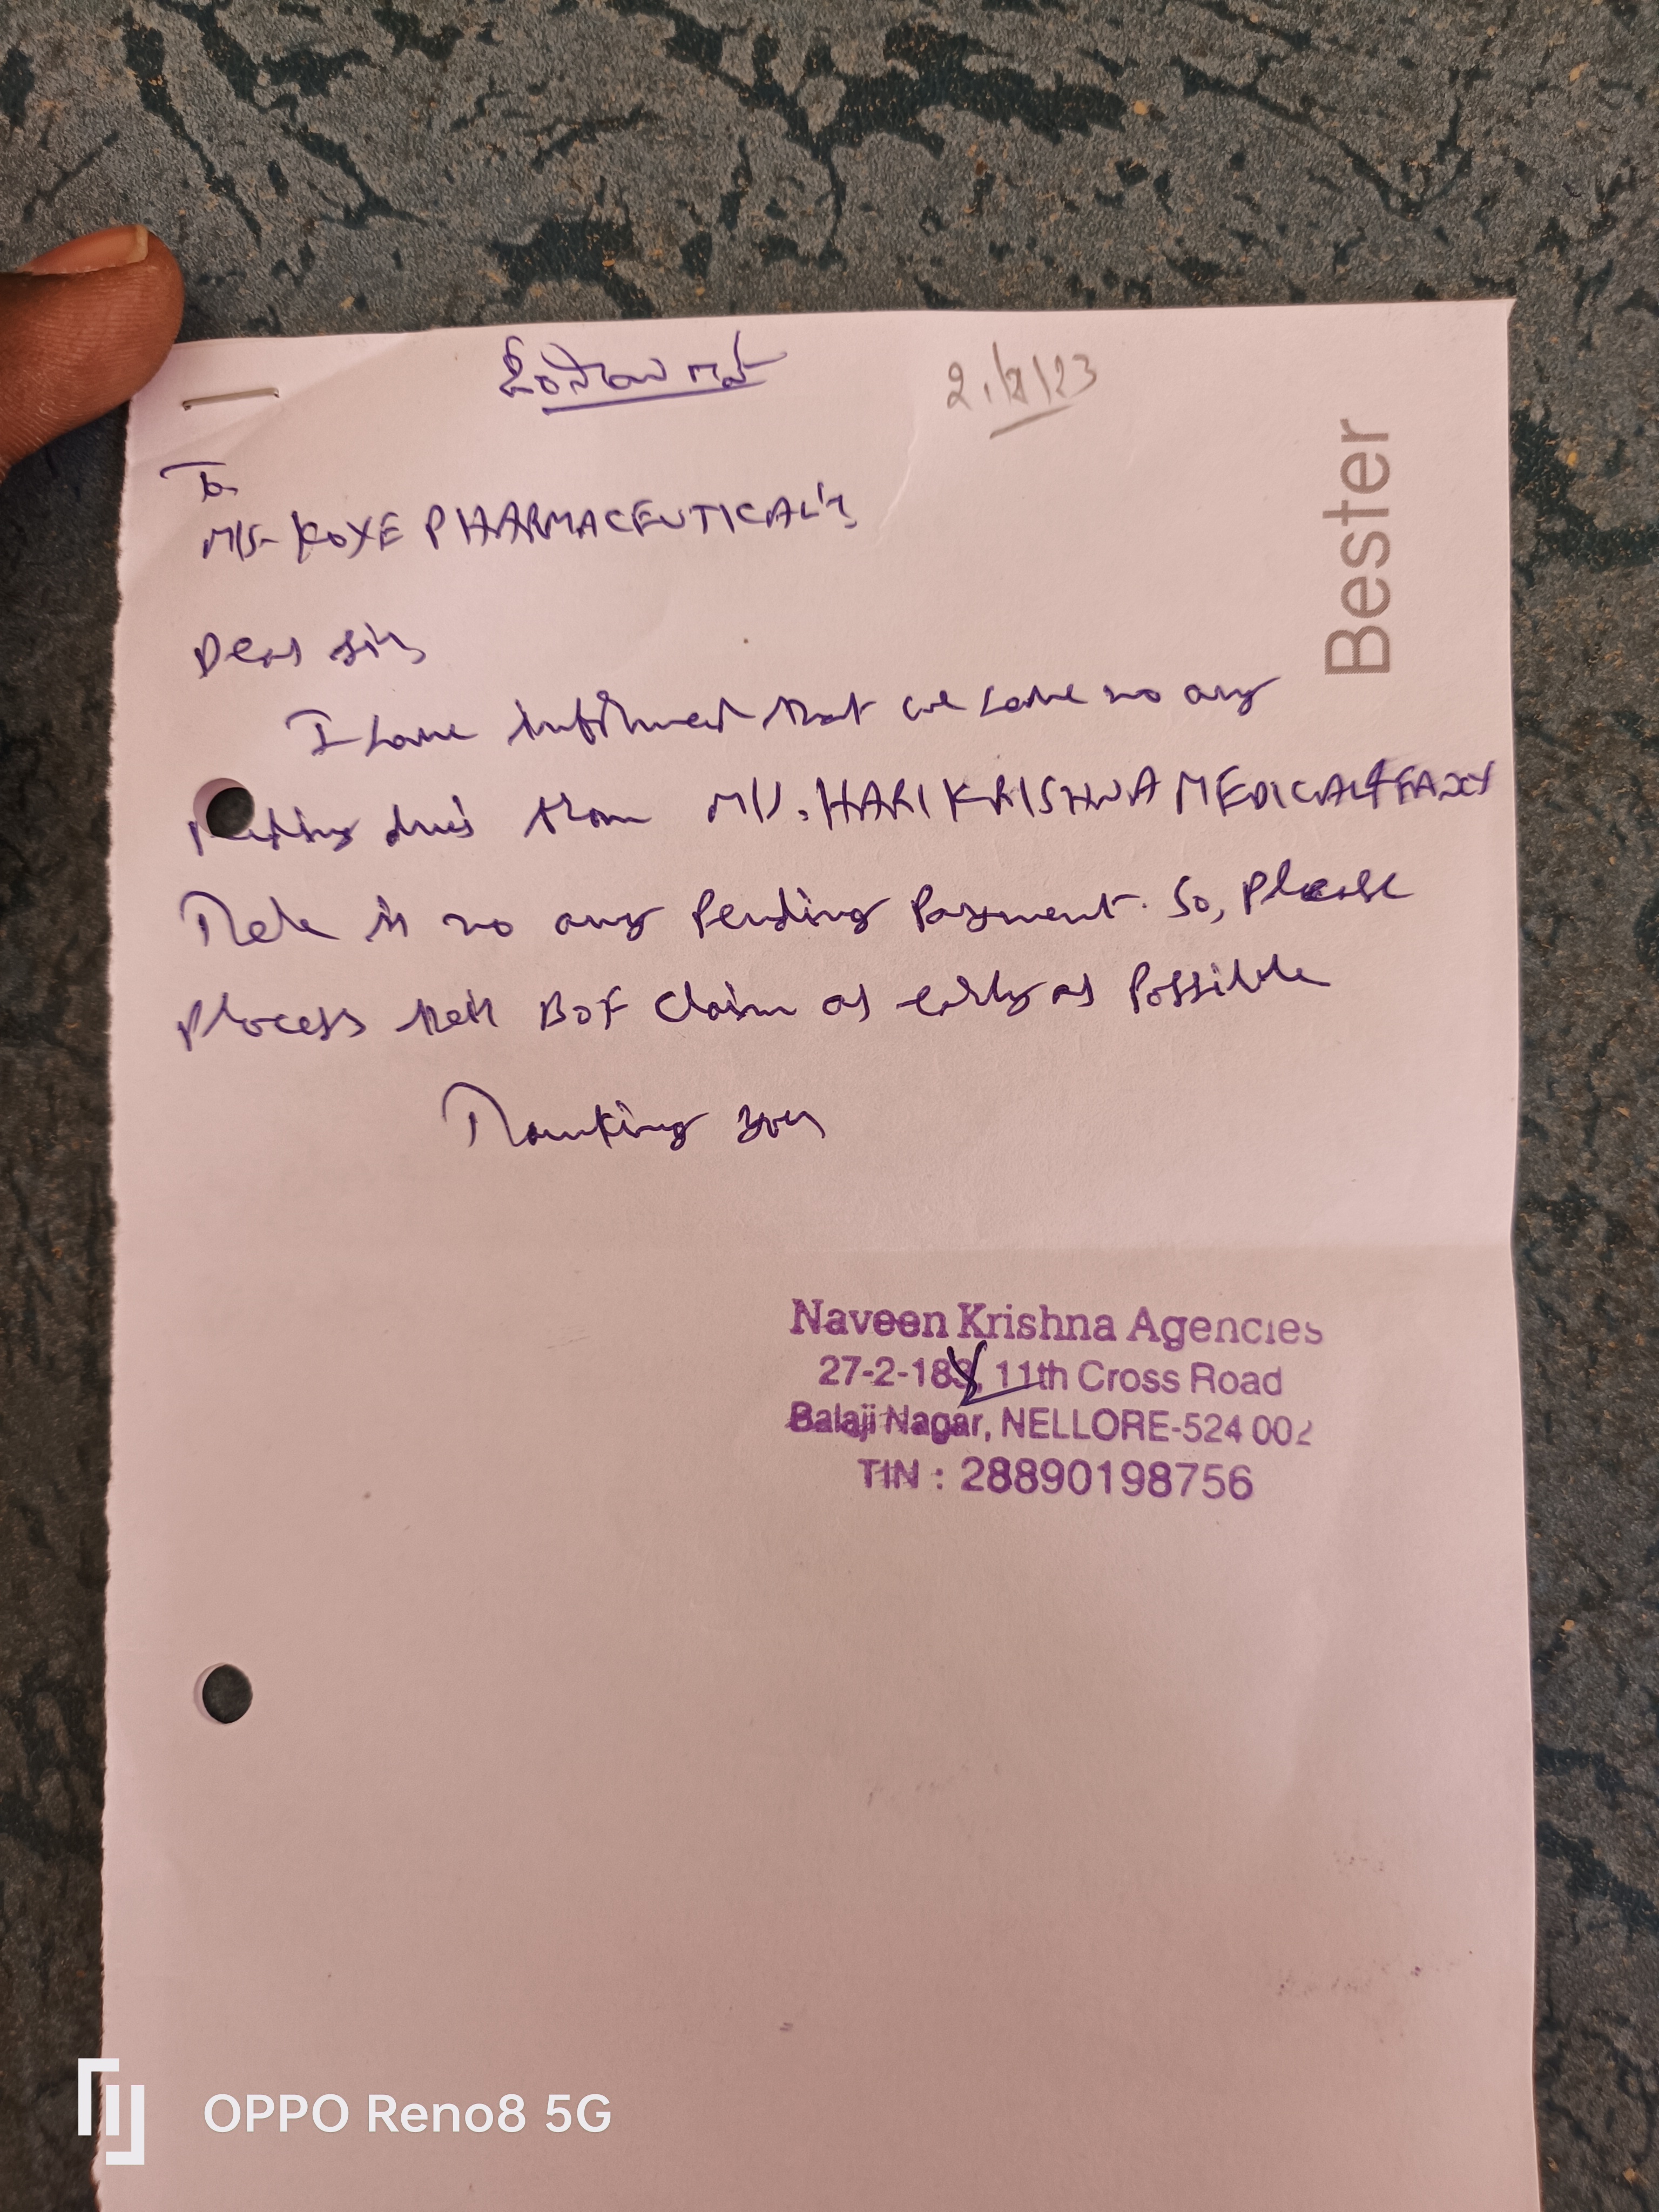 To
M/S- KOYE PHARMACEUTICAL's
Dear sir,
I have informed that we have no any
Pending due's from M/S. HARI KRISHNA MEDICAL & FANCY
There is no any Pending Payment. So, Please
Process their BOF Claim as early as Possible
Thanking you
Bester
Naveen Krishna Agencies
27-2-183, 11th Cross Road
Balaji Nagar, NELLORE-524 002
TIN : 28890198756
OPPO Reno8 5G